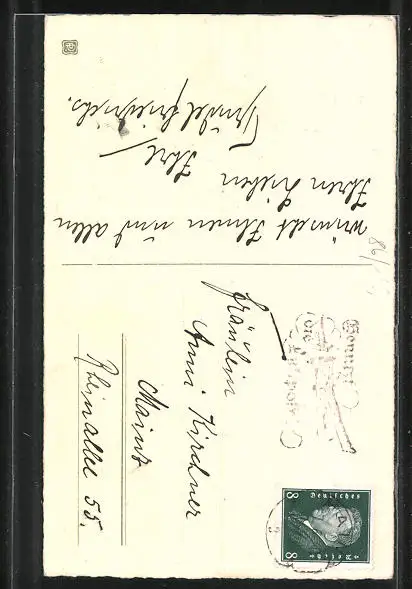 wünscht Ihnen und allen
Ihren Lieben
Ihre
Fräulein
Anni Kirchner
Mainz
Rheinallee 55.
Benutzt
die
Deutsches
Reich
8
8